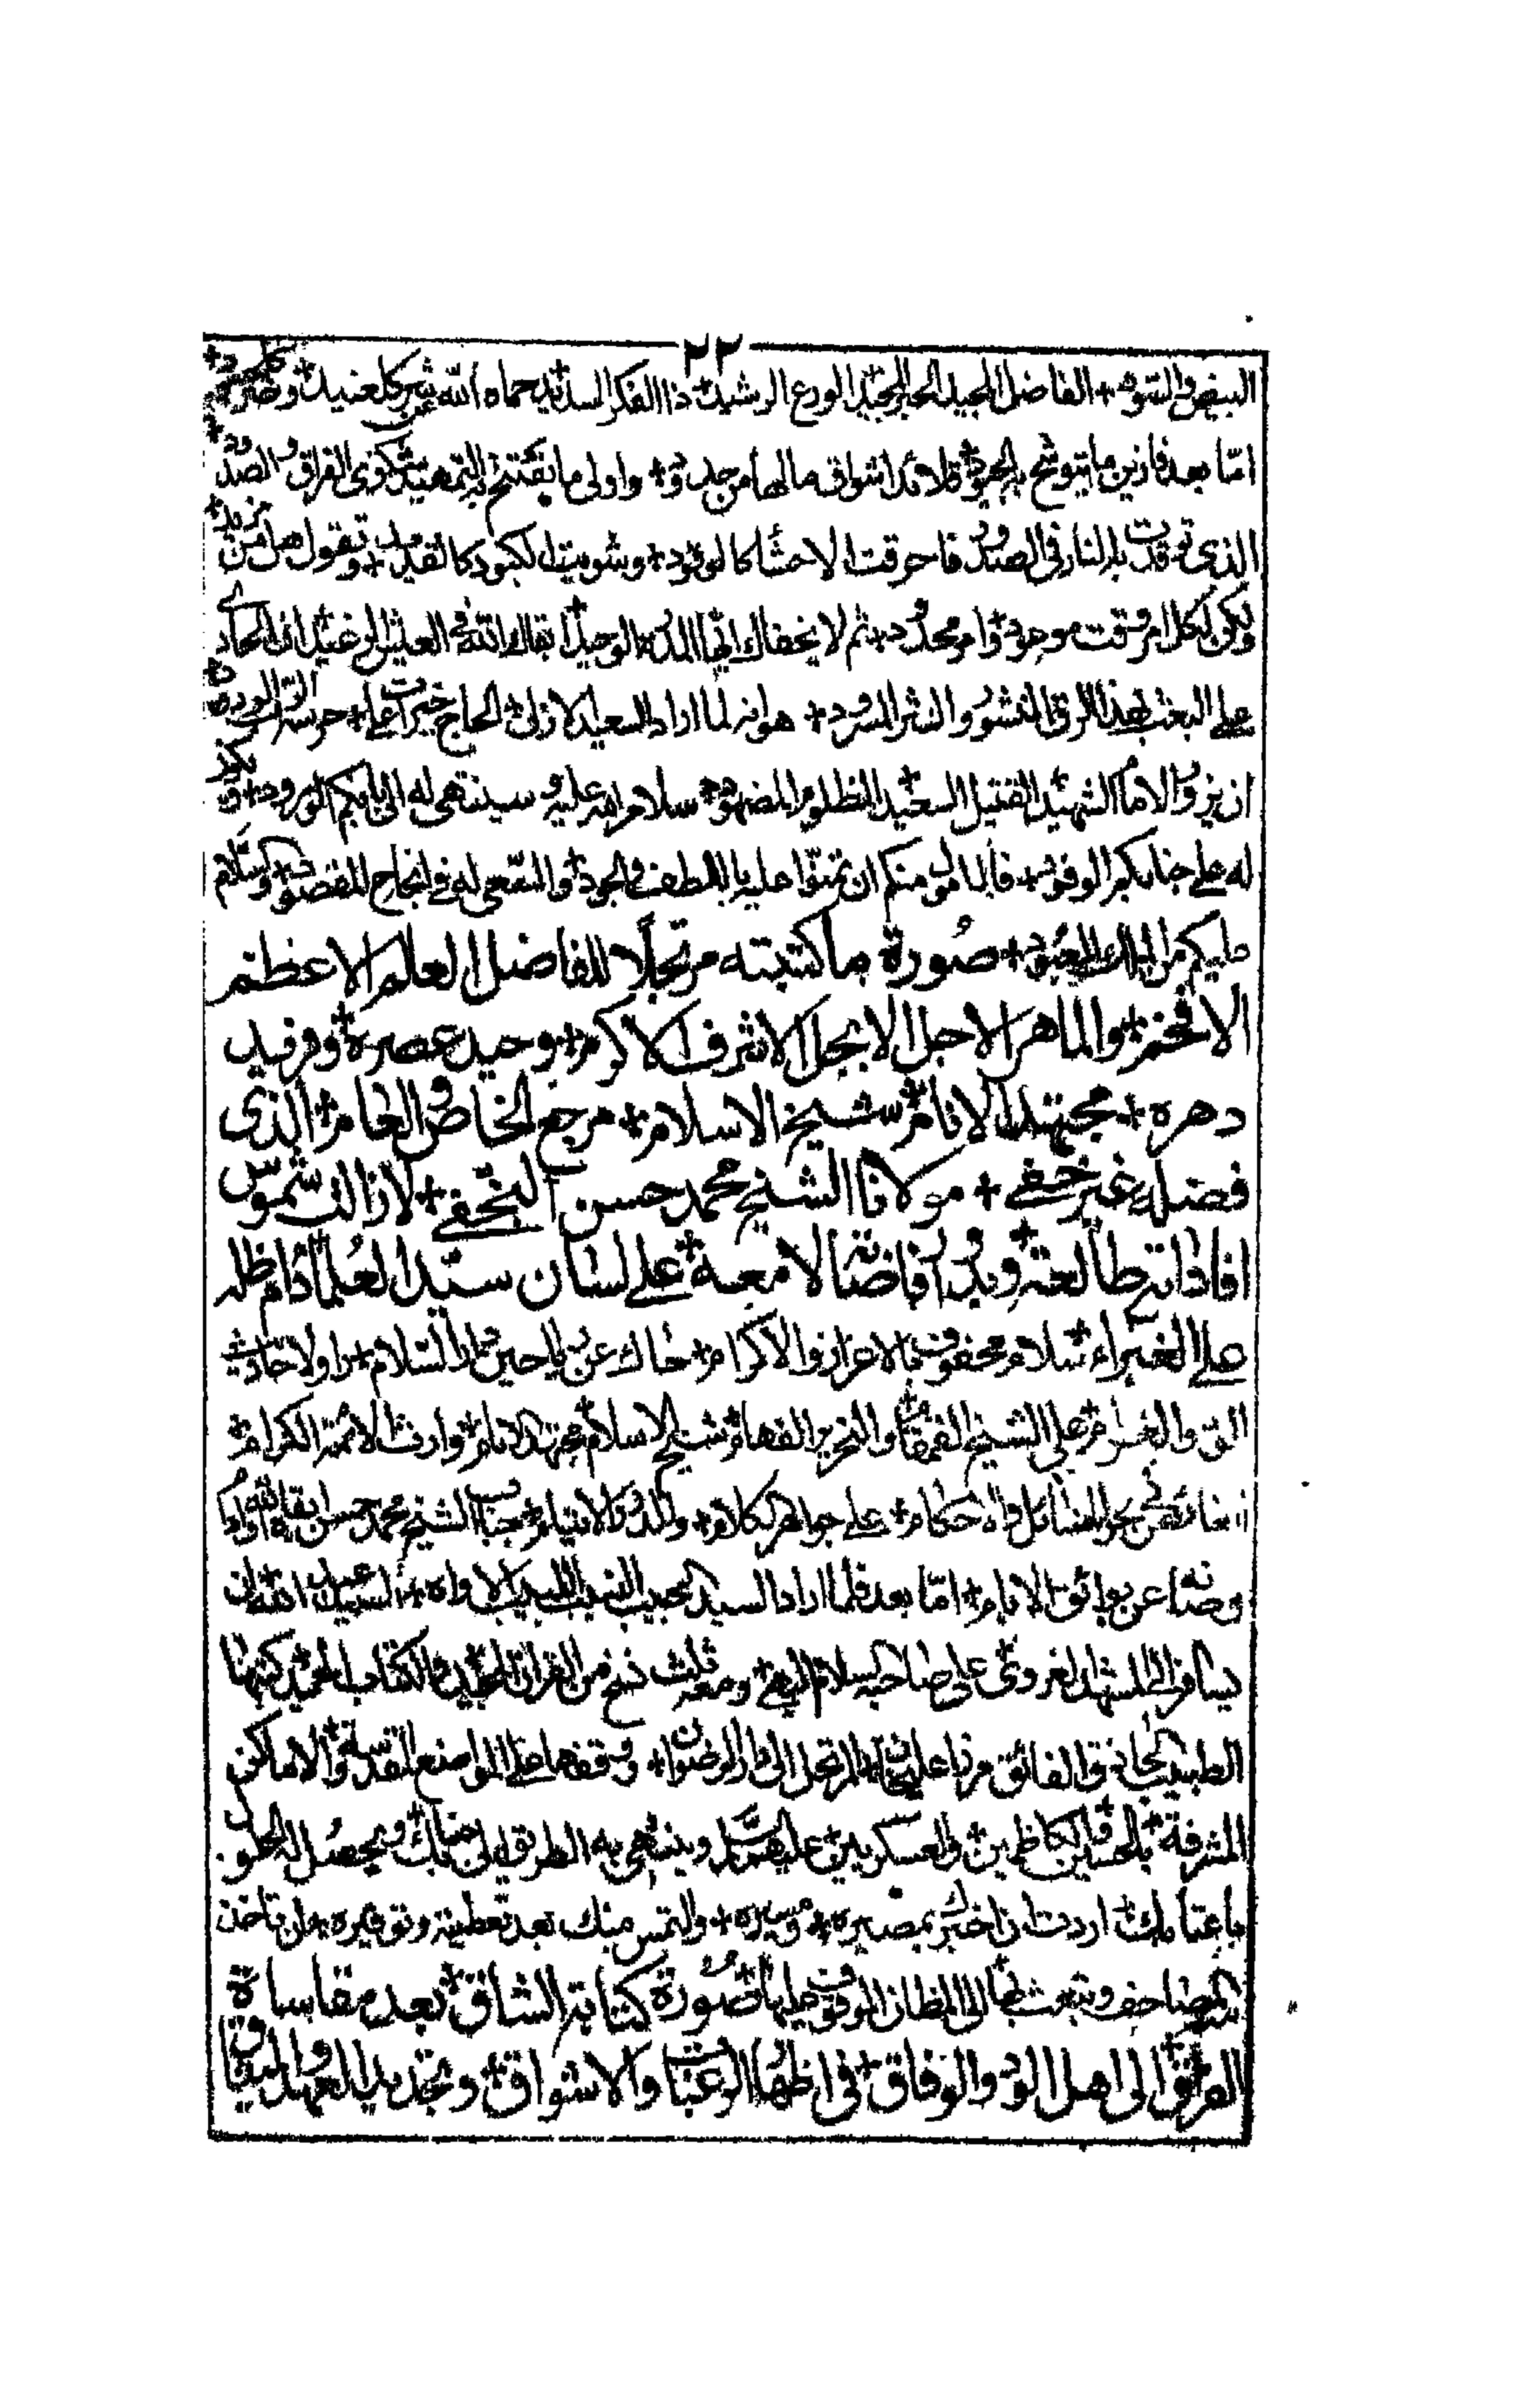 ٢٢
البيض والسود + الفاضل المجيد الحبر المجيد الورع الرشيد + ذا الفكر السديد حماه الله عن شر كل عنيد +
اما بعد فازين ما يتوشح به الجيد قلائد اشواق مالها من جدد + واولى ما يفتتح به التمهيد شكوى الفراق والصدود +
الذى توقدت به النار فى الصدور فاحرقت الاحشا كالوقود + وشويت الكبود كالقديد + وتقول هل من مزيد +
ولكن لكل امر وقت موجود + وامر محدود + ثم لا يخفاك ايها الوحيد ابقاك الله فى العيش الرغيد ان الحادى
على البعث بهذا الرق المنشور والنثر المسرود + هو انه لما اراد السعيد الازلى الحاج خيرات على + حرسه الرب الودود
ان يزور الامام الشهيد القتيل السعيد المظلوم المضهود + سلام الله عليه وسينتهى له الى بابكم الورود +
له على جنابكم الوفود + فالمامول منكم ان تمنوا عليه باللطف والجود + والسعى له فى انجاح المقصود + وسلام
عليكم من الملك المعبود + صورة ما كتبته مرتجلا للفاضل العالم الاعظم
الافخم + والماهر الاجل الابجل الاشرف الاكرم + وحيد عصره + وفريد
دهره + مجتهد الانام + شيخ الاسلام + مرجع الخاص والعام + الذى
فضله غير خفے + مولانا الشيخ محمد حسن النجفے + لازالت شموس
افاداته طالعة + وبدور افاضاته لامعة + على لسان سيد العلما دام ظله
على الغبراء + سلام محفوف بالاعزاز والاكرام + حاك عن رياحين دار السلام +
على الشيخ القمقام + والنحرير الفهام + شيخ الاسلام + مجتهد الانام + وارث الائمة الكرام +
على جواهر الكلام + جناب الشيخ محمد حسن ابقاه الله
وصانه عن بوائق الانام + اما بعد فلما اراد السيد الحبيب النسيب اللبيب الاواه + السيد عبد الله ان
يسافر الى المشهد الغروى على صاحبه السلام + ومعه ثلث نسخ من القران المجيد والكتاب الحميد كتبها
الطبيب الحاذق الفائق مرزا على خان المرتحل الى دار الرضوان + ووقفها على المواضع المقدسة + والاماكن
المشرفة + بالحسين والكاظمين + والعسكريين عليهم السلام وينتهى به الطريق الى جنابك + ويحصل له الحلول
باعتابك + اردت ان اخبرك بمصيره + ومسيره + والتمس منك بعد تعظيمه وتوقيره + ان تاخذ
المصاحف وتبعث بها الى المظان الموقوف عليها + صورة كتابة الشاق + بعد مقاساة
الفراق + الى اهل الود والوفاق + فى اظهار الرغبات والاشواق + وتجديد العهد والميثاق